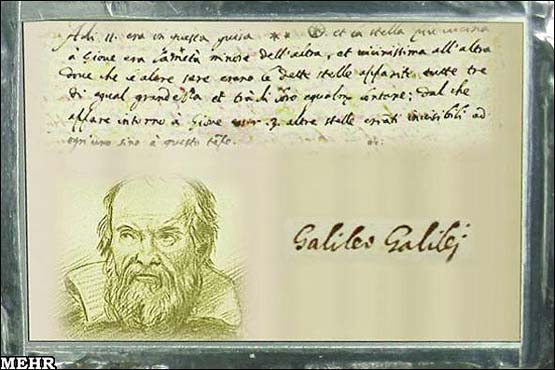 Adi 11. era in questa guisa ** et la stella più vicina
à Giove era la metà minore dell'altra, et vicinissima all'altra
dove che le altre sere erano le dette stelle apparite tutte tre
di egual grandezza et trà di loro egualm. lontane; dal che
appare intorno à Giove esser .3. altre stelle erranti invisibili ad
ogn'uno sino à questo tempo.
Galileo Galilej
MEHR